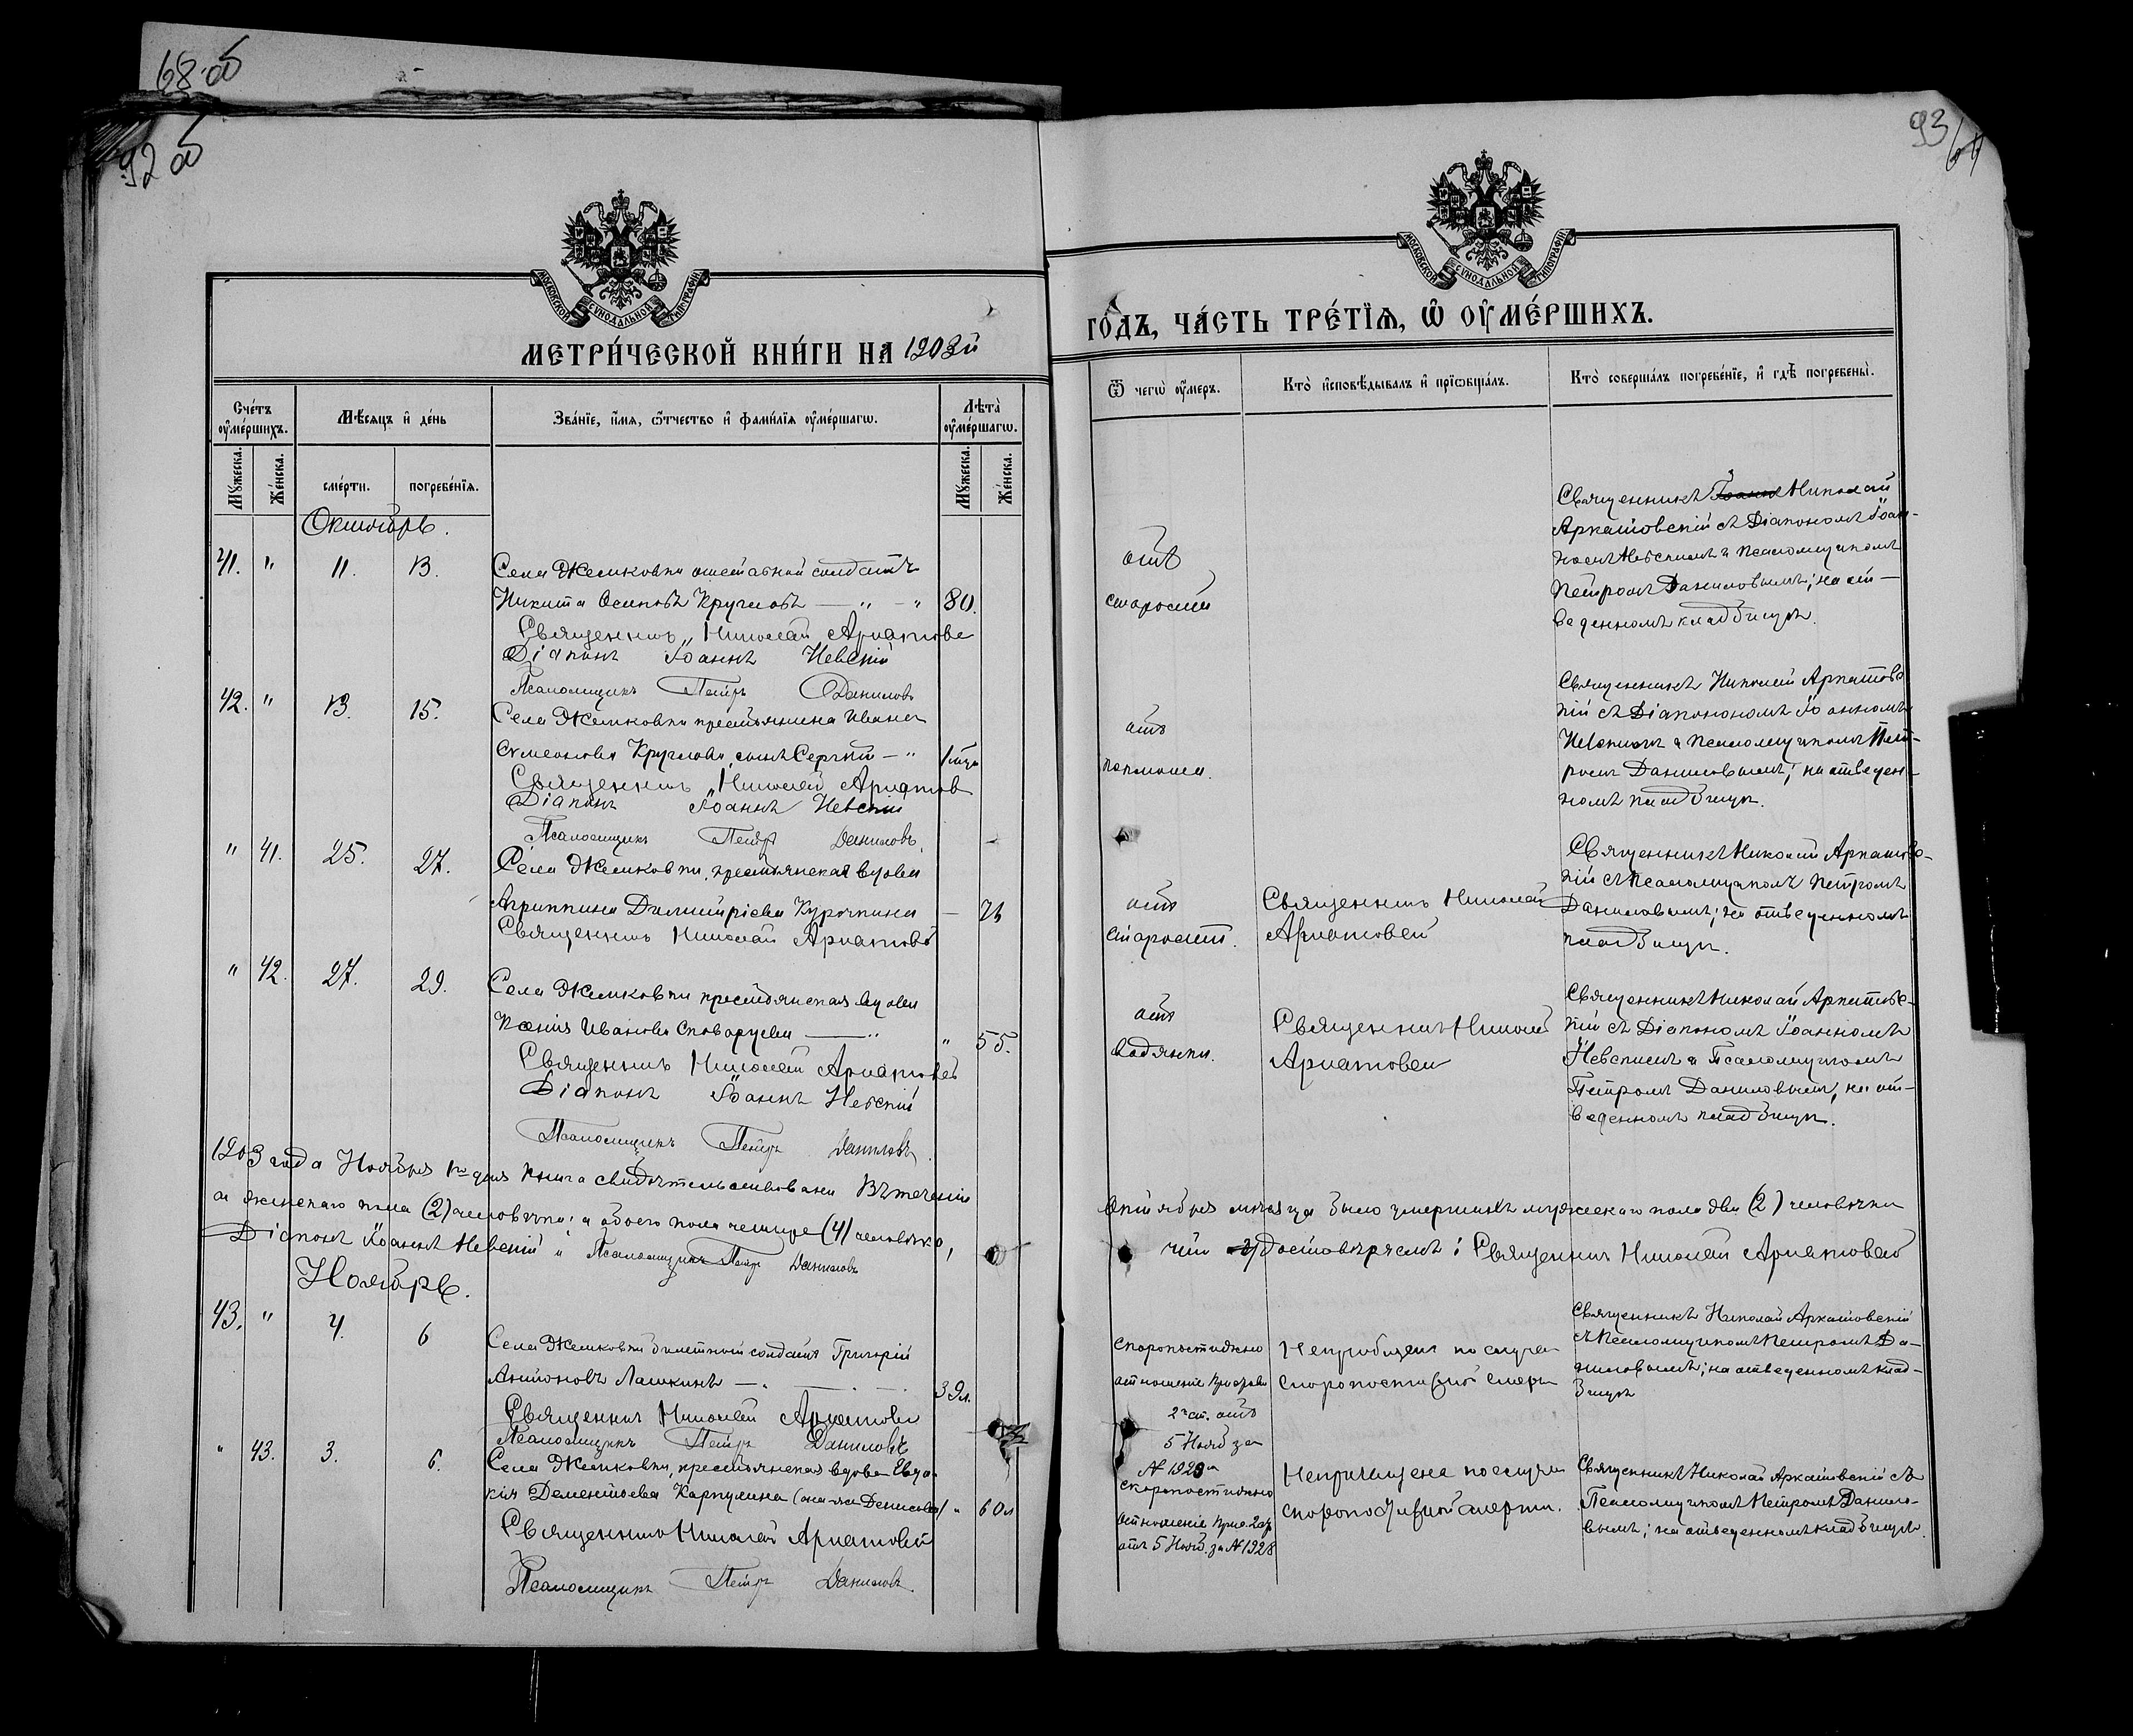 68 об
92 об
93
МОСКОВСКОЙ СѴНОДАЛЬНОЙ ТИПОГРАФІИ
МОСКОВСКОЙ СѴНОДАЛЬНОЙ ТИПОГРАФІИ
МЕТРИ́ЧЕСКОЙ КНИ́ГИ НА 1903й
ГО́ДЪ, ЧА́СТЬ ТРЕ́ТІѦ, Ѽ ОУ҆МЕ́РШИХЪ.
Сче́тъ оу҆ме́ршихъ.
Мѣ́сяцъ и҆ де́нь
Зва́нїе, и҆́мѧ, ѻ҆́тчество и҆ фами́лїѧ оу҆ме́ршагѡ.
Лѣта̀ оу҆ме́ршагѡ.
Ѿ чегѡ̀ оу҆́меръ.
Кто̀ и҆сповѣ́дывалъ и҆ прїѡбща́лъ.
Кто̀ соверша́лъ погребе́нїе, и҆ гдѣ̀ погребены̀.
Мꙋ́жеска.
Же́нска.
сме́рти.
погребе́нїѧ.
Мꙋ́жеска.
Же́нска.
Октябрь.
41. " 11. 13.
Села Жемковки отставной солдатъ
Никита Осиповъ Кругловъ — " — " 80.
Священникъ Николай Аркатовс
Діаконъ Іоаннъ Невскій
Псаломщикъ Петръ Даниловъ
отъ
старости
Священникъ Николай
Аркатовскій съ Діакономъ Іоан-
номъ Невскимъ и псаломщикомъ
Петромъ Даниловымъ; на от-
веденномъ кладбищѣ.
42. " 13. 15.
Села Жемковки крестьянина Ивана
Симеонова Круглова, сынъ Сергѣй — "
Священникъ Николай Аркатов
Діаконъ Іоаннъ Невскій
Псаломщикъ Петръ Даниловъ.
отъ
Священникъ Николай Аркатовс
кій съ Діакономъ Іоанномъ
Невскимъ и псаломщикомъ Пет-
ромъ Даниловымъ; на отведен-
номъ кладбищѣ.
" 41. 25. 27.
Села Жемковки, крестьянская вдова
Агриппина Димитріева Курочкина —
Священникъ Николай Аркатовс
отъ
старости.
Священникъ Николай
Аркатовск
Священникъ Николай Аркатовс-
кій съ псаломщикомъ Петромъ
Даниловымъ; на отведенномъ
кладбищѣ.
" 42. 27. 29.
Села Жемковки крестьянская вдова
Ксенія Иванова — " " 55.
Священникъ Николай Аркатовс
Діаконъ Іоаннъ Невскій
Псаломщикъ Петръ Даниловъ.
отъ
водянки.
Священникъ Николай
Аркатовск
Священникъ Николай Аркатовс-
кій съ Діакономъ Іоанномъ
Невскимъ и Псаломщикомъ
Петромъ Даниловымъ, на от-
веденномъ кладбищѣ.
1903 года Ноября 1го дня книга свидѣтельствована Въ теченіи
Октября мѣсяца было умершихъ мужскаго пола два (2) человѣка
а женскаго пола (2) человѣка; а обоего пола четыре (4) человѣка,
что удостовѣряемъ: Священникъ Николай Аркатовск
Діаконъ Іоаннъ Невскій и Псаломщикъ Петръ Даниловъ
Ноябрь.
43. " 4. 6
Села Жемковки билетный солдатъ Григорій
Антоновъ Лашкинъ — " 39л.
Священникъ Николай Аркатовс
Псаломщикъ Петръ Даниловъ
скоропостижно
отношеніе
2 ст. отъ
5 Нояб за
№ 1929
по случаю
скоропостижной смерти
Священникъ Николай Аркатовскій
съ псаломщикомъ Петромъ Да-
ниловымъ; на отведенномъ клад-
бищѣ
" 43. 3. 6.
Села Жемковки, крестьянская вдова Евдо-
кія Дементьева Карпухина (она-же Денисова) " 60л
Священникъ Николай Аркатовск
Псаломщикъ Петръ Даниловъ.
скоропостижно
отношеніе
отъ 5 Нояб. за № 1928
Непричащена по случаю
скоропостижной смерти.
Священникъ Николай Аркатовскій съ
Псаломщикомъ Петромъ Данило-
вымъ; на отведенномъ кладбищѣ.